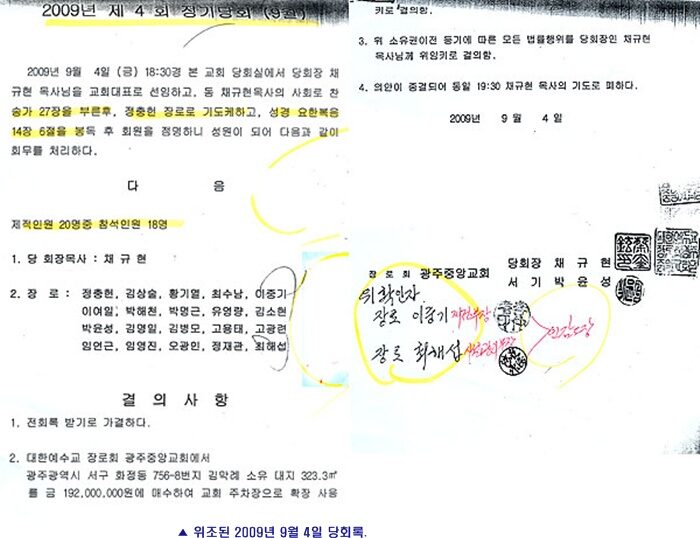 2009년 제 4 회 정기당회 (9월)
2009년 9월 4일 (금) 18:30경 본 교회 당회실에서 당회장 채
규현 목사님을 교회대표로 선임하고, 동 채규현목사의 사회로 찬
송가 27장을 부른후, 정충헌 장로로 기도케하고, 성경 요한복음
14장 6절을 봉독 후 회원을 점명하니 성원이 되어 다음과 같이
회무를 처리하다.
다 음
제적인원 20명중 참석인원 18명
1. 당 회장목사 : 채 규 현
2. 장 로 : 정충헌, 김상술, 황기열, 최수남, 이중기
이여일, 박해천, 박명근, 유영량, 김소현
박윤성, 김영일, 김병모, 고용태, 고광련
임연근, 임영진, 오광인, 정재관, 최해섭
결 의 사 항
1. 전회록 받기로 가결하다.
2. 대한예수교 장로회 광주중앙교회에서
광주광역시 서구 화정동 756-8번지 김막례 소유 대지 323.3㎡
를 금 192,000,000원에 매수하여 교회 주차장으로 확장 사용
키로 결의함.
3. 위 소유권이전 등기에 따른 모든 법률행위를 당회장인 채규현
목사님께 위임키로 결의함.
4. 의안이 종결되어 동일 19:30 채규현 목사의 기도로 폐하다.
2009년 9 월 4 일
장 로 회 광주중앙교회 당회장 채 규 현
서 기 박 윤 성
위 확인자
장로 이중기 재정부장
장로 최해섭
인감도장
▲ 위조된 2009년 9월 4일 당회록.